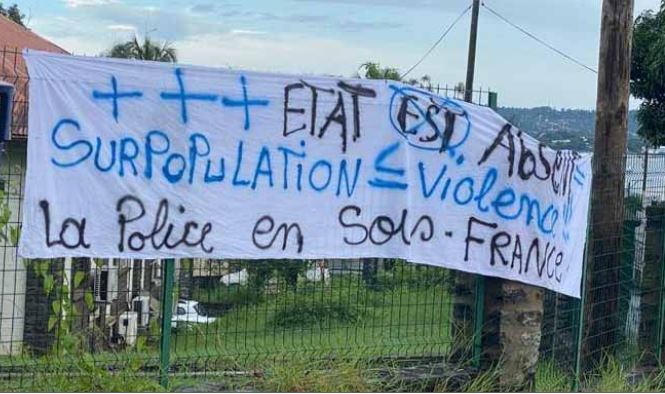 + + + ETAT EST Absent
SURPOPULATION ≤ Violence !!
La Police en Sols-FRANCE